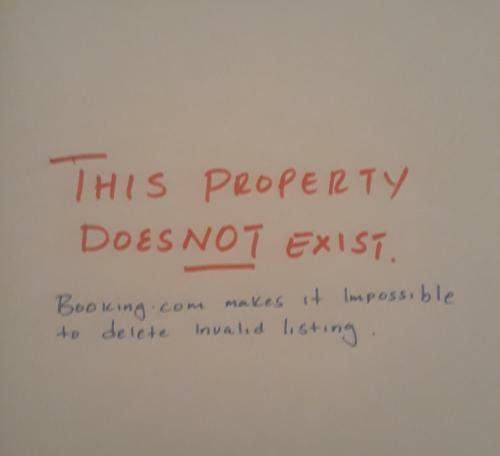 THIS PROPERTY
DOES NOT EXIST.
Booking.com makes it Impossible
to delete Invalid listing.